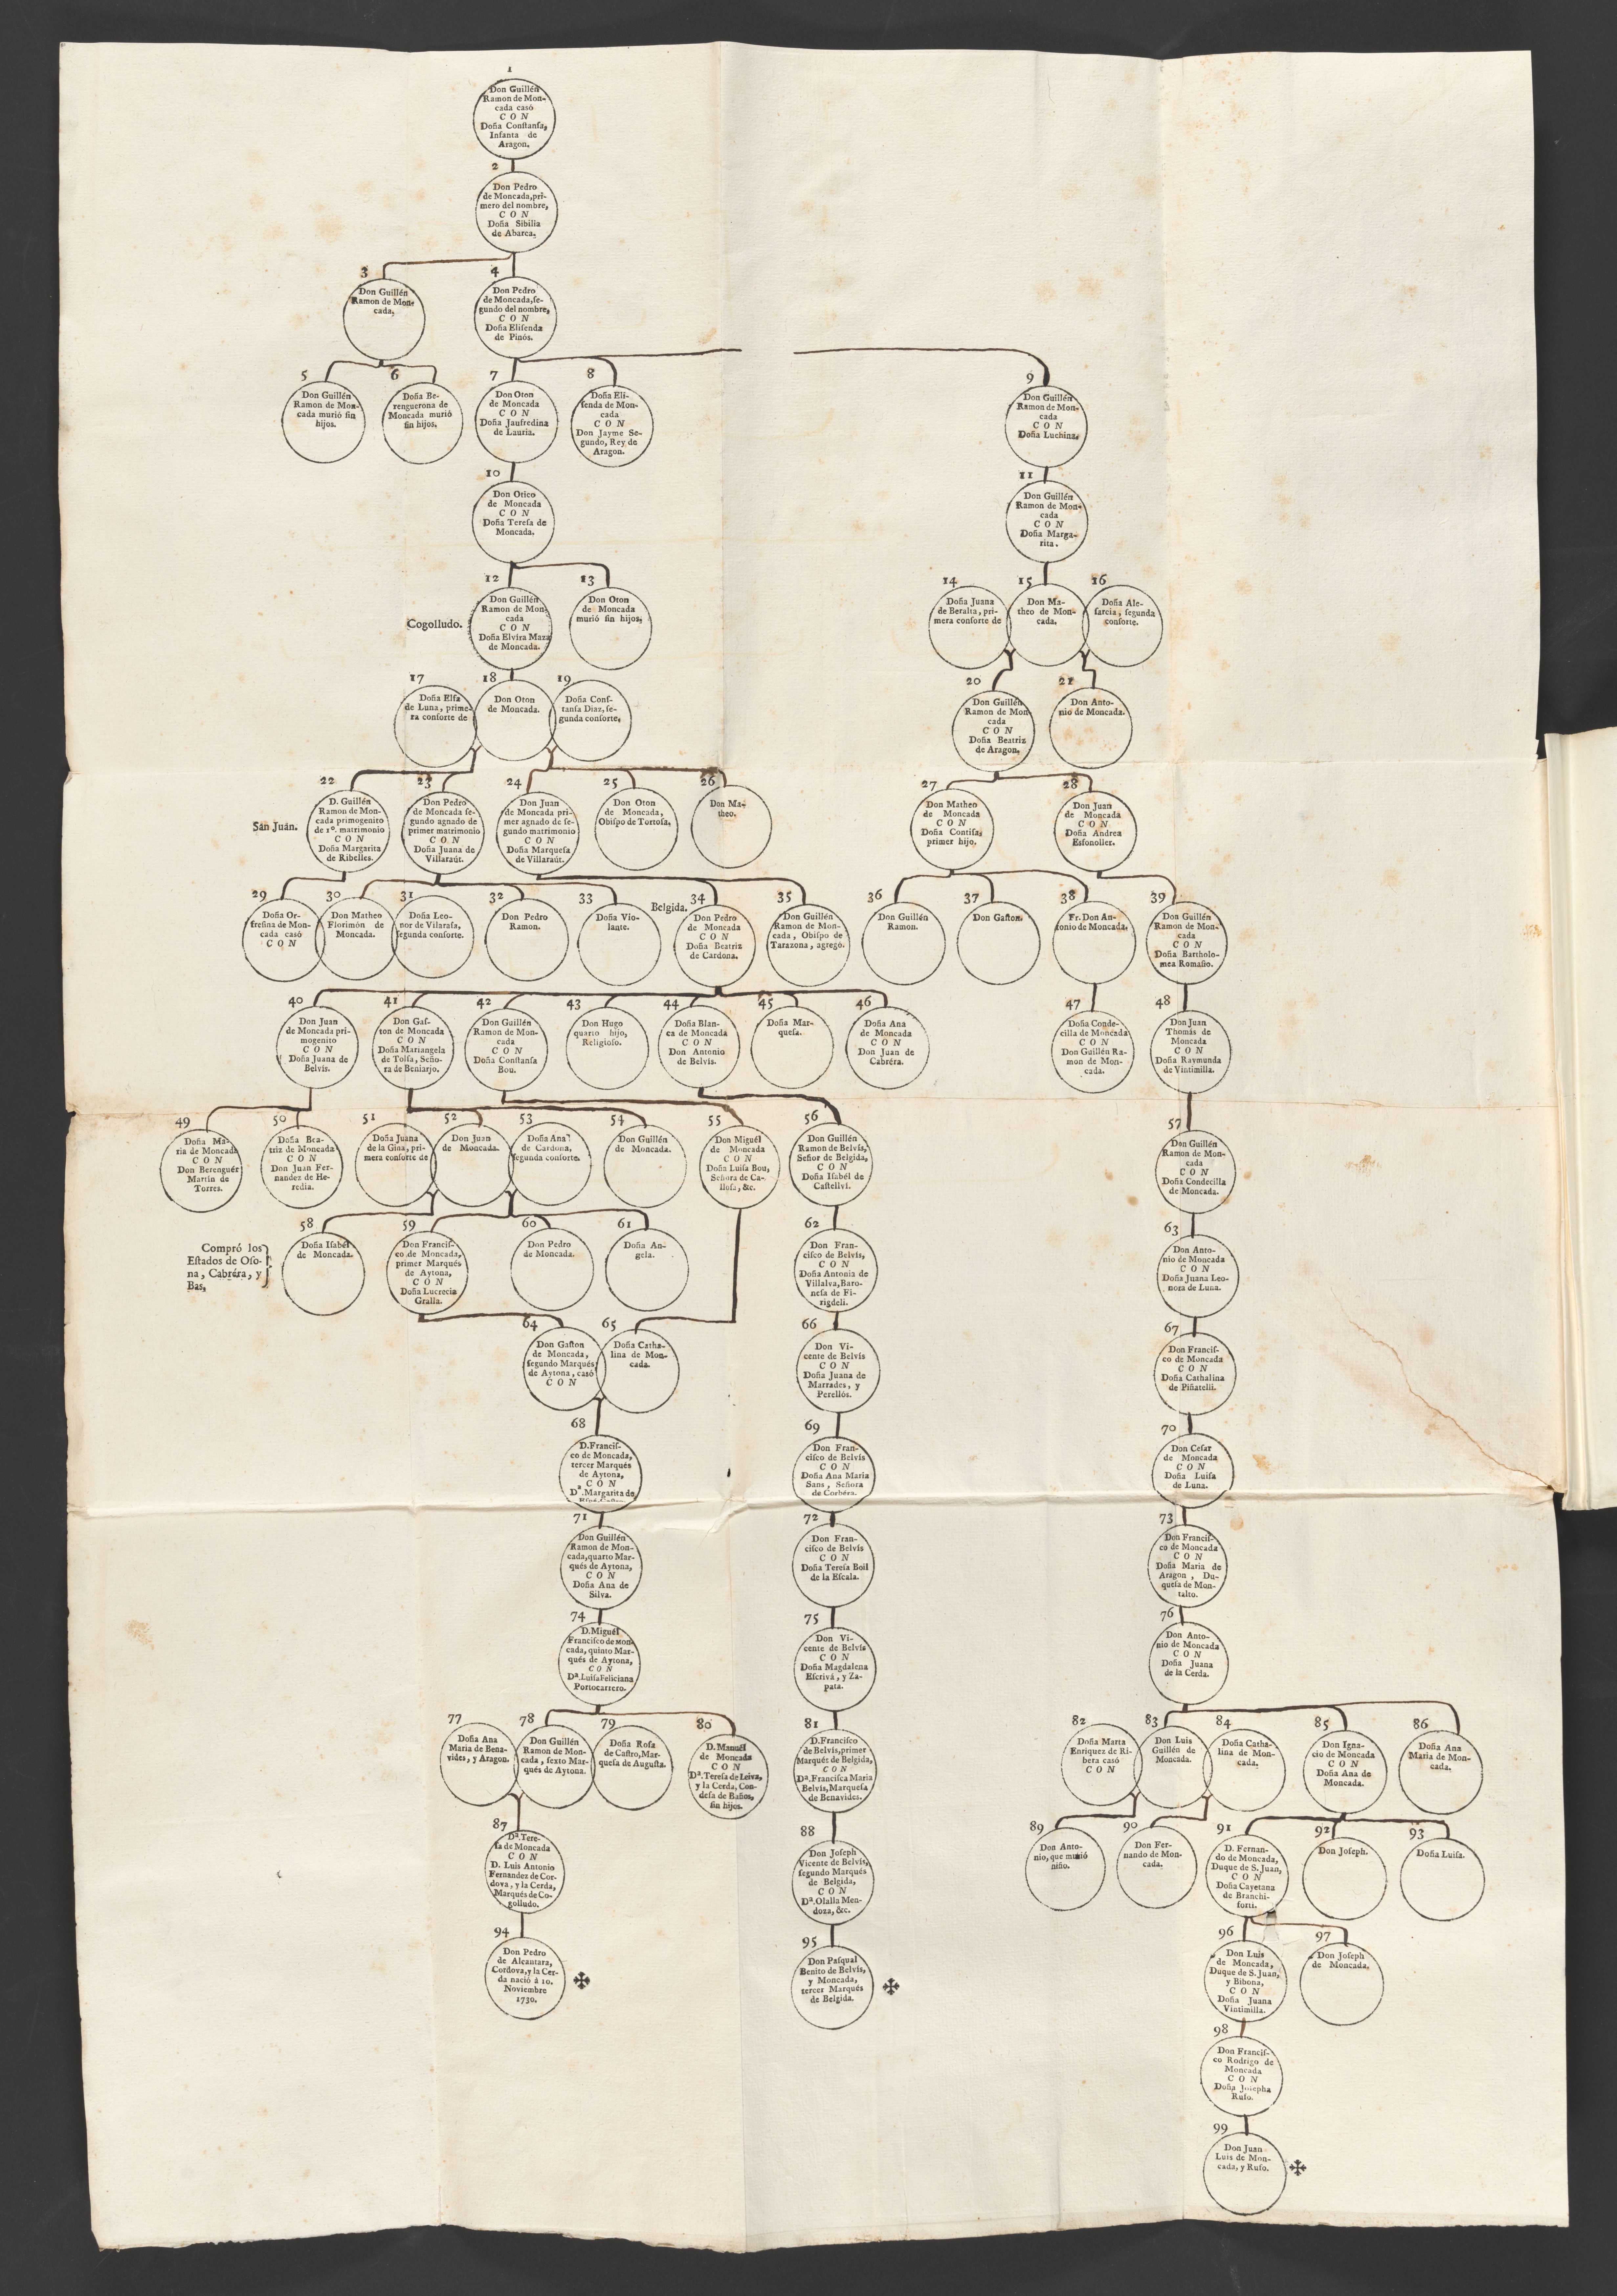 1
Don Guillén
Ramon de Mon-
cada casó
CON
Doña Conſtanſa,
Infanta de
Aragon.
2
Don Pedro
de Moncada, pri-
mero del nombre,
CON
Doña Sibilia
de Abarca,
3
Don Guillén
Ramon de Mon-
cada,
4
Don Pedro
de Moncada, ſe-
gundo del nombre,
CON
Doña Eliſenda
de Pinós.
5
Don Guillén
Ramon de Mon-
cada murió ſin
hijos.
6
Doña Be-
renguerona de
Moncada murió
ſin hijos.
7
Don Oton
de Moncada
CON
Doña Jaufredina
de Lauria.
8
Doña Eli-
ſenda de Mon-
cada
CON
Don Jayme Se-
gundo, Rey de
Aragon.
9
Don Guillén
Ramon de Mon-
cada
CON
Doña Luchina,
10
Don Otico
de Moncada
CON
Doña Tereſa de
Moncada.
11
Don Guillén
Ramon de Mon-
cada
CON
Doña Marga-
rita.
Cogolludo.
12
Don Guillén
Ramon de Mon-
cada
CON
Doña Elvira Maza
de Moncada.
13
Don Oton
de Moncada
murió ſin hijos,
14
Doña Juana
de Beralta, pri-
mera conſorte de
15
Don Ma-
theo de Mon-
cada.
16
Doña Ale-
ſarcia, ſegunda
conſorte.
17
Doña Elſa
de Luna, prime-
ra conſorte de
18
Don Oton
de Moncada.
19
Doña Conſ-
tanſa Diaz, ſe-
gunda conſorte,
20
Don Guillén
Ramon de Mon-
cada
CON
Doña Beatriz
de Aragon.
21
Don Anto-
nio de Moncada.
San Juán.
22
D. Guillén
Ramon de Mon-
cada primogenito
de 1º. matrimonio
CON
Doña Margarita
de Ribelles.
23
Don Pedro
de Moncada ſe-
gundo agnado de
primer matrimonio
CON
Doña Juana de
Villaraút.
24
Don Juan
de Moncada pri-
mer agnado de ſe-
gundo matrimonio
CON
Doña Marqueſa
de Villaraút.
25
Don Oton
de Moncada,
Obiſpo de Tortoſa,
26
Don Ma-
theo.
27
Don Matheo
de Moncada
CON
Doña Contiſa,
primer hijo.
28
Don Juan
de Moncada
CON
Doña Andrea
Esfonoller.
29
Doña Or-
freſina de Mon-
cada casó
CON
30
Don Matheo
Florimón de
Moncada.
31
Doña Leo-
nor de Vilaraſa,
ſegunda conſorte.
32
Don Pedro
Ramon.
33
Doña Vio-
lante.
Belgida.
34
Don Pedro
de Moncada
CON
Doña Beatriz
de Cardona.
35
Don Guillén
Ramon de Mon-
cada, Obiſpo de
Tarazona, agregó.
36
Don Guillén
Ramon.
37
Don Gaſton.
38
Fr. Don An-
tonio de Moncada.
39
Don Guillén
Ramon de Mon-
cada
CON
Doña Bartholo-
mea Romaño.
40
Don Juan
de Moncada pri-
mogenito
CON
Doña Juana de
Belvís.
41
Don Gaſ-
ton de Moncada
CON
Doña Mariangela
de Tolſa, Seño-
ra de Beniarjo.
42
Don Guillén
Ramon de Mon-
cada
CON
Doña Conſtanſa
Bou.
43
Don Hugo
quarto hijo,
Religioſo.
44
Doña Blan-
ca de Moncada
CON
Don Antonio
de Belvis.
45
Doña Mar-
queſa.
46
Doña Ana
de Moncada
CON
Don Juan de
Cabréra.
47
Doña Conde-
cilla de Moncada
CON
Don Guillén Ra-
mon de Mon-
cada.
48
Don Juan
Thomás de
Moncada
CON
Doña Raymunda
de Vintimilla.
49
Doña Ma-
ria de Moncada
CON
Don Berenguér
Martin de
Torres.
50
Doña Bea-
triz de Moncada
CON
Don Juan Fer-
nandez de He-
redia.
51
Doña Juana
de la Gina, pri-
mera conſorte de
52
Don Juan
de Moncada.
53
Doña Ana
de Cardona,
ſegunda conſorte.
54
Don Guillén
de Moncada.
55
Don Miguél
de Moncada
CON
Doña Luiſa Bou,
Señora de Ca-
lloſa, &c.
56
Don Guillén
Ramon de Belvís,
Señor de Belgida,
CON
Doña Isabél de
Caſtellví.
57
Don Guillén
Ramon de Mon-
cada
CON
Doña Condecilla
de Moncada.
Compró los
Eſtados de Oſo-
na, Cabréra, y
Bas,
58
Doña Isabél
de Moncada.
59
Don Franciſ-
co de Moncada,
primer Marqués
de Aytona,
CON
Doña Lucrecia
Gralla.
60
Don Pedro
de Moncada.
61
Doña An-
gela.
62
Don Fran-
ciſco de Belvis,
CON
Doña Antonia de
Villalva, Baro-
neſa de Fi-
rigdeli.
63
Don Anto-
nio de Moncada
CON
Doña Juana Leo-
nora de Luna.
64
Don Gaſton
de Moncada,
ſegundo Marqués
de Aytona, casó
CON
65
Doña Catha-
lina de Mon-
cada.
66
Don Vi-
cente de Belvís
CON
Doña Juana de
Marrades, y
Perellós.
67
Don Franciſ-
co de Moncada
CON
Doña Cathalina
de Piñatelli.
68
D. Franciſ-
co de Moncada,
tercer Marqués
de Aytona,
CON
Dª. Margarita de
69
Don Fran-
ciſco de Belvís
CON
Doña Ana Maria
Sans, Señora
de Corbéra.
70
Don Ceſar
de Moncada
CON
Doña Luiſa
de Luna.
71
Don Guillén
Ramon de Mon-
cada, quarto Mar-
qués de Aytona,
CON
Doña Ana de
Silva.
72
Don Fran-
ciſco de Belvís
CON
Doña Tereſa Boil
de la Eſcala.
73
Don Franciſ-
co de Moncada
CON
Doña Maria de
Aragon, Du-
queſa de Mon-
talto.
74
D. Miguél
Franciſco de Mon-
cada, quinto Mar-
qués de Aytona,
CON
Dª. Luiſa Feliciana
Portocarrero.
75
Don Vi-
cente de Belvís
CON
Doña Magdalena
Eſcrivá, y Za-
pata.
76
Don Anto-
nio de Moncada
CON
Doña Juana
de la Cerda.
77
Doña Ana
Maria de Bena-
vides, y Aragon.
78
Don Guillén
Ramon de Mon-
cada, ſexto Mar-
qués de Aytona.
79
Doña Roſa
de Caſtro, Mar-
queſa de Auguſta.
80
D. Manuél
de Moncada
CON
Dª. Tereſa de Leiva,
y la Cerda, Con-
deſa de Baños,
ſin hijos.
81
D. Franciſco
de Belvis, primer
Marqués de Belgida,
CON
Dª. Franciſca Maria
Belvis, Marqueſa
de Benavides.
82
Doña Marta
Enriquez de Ri-
bera casó
CON
83
Don Luis
Guillén de
Moncada.
84
Doña Catha-
lina de Mon-
cada.
85
Don Igna-
cio de Moncada
CON
Doña Ana de
Moncada.
86
Doña Ana
Maria de Mon-
cada.
87
Dª. Tere-
ſa de Moncada
CON
D. Luis Antonio
Fernandez de Cor-
dova, y la Cerda,
Marqués de Co-
golludo.
88
Don Joſeph
Vicente de Belvís,
ſegundo Marqués
de Belgida,
CON
Dª. Olalla Men-
doza, &c.
89
Don Anto-
nio, que murió
niño.
90
Don Fer-
nando de Mon-
cada.
91
D. Fernan-
do de Moncada,
Duque de S. Juan,
CON
Doña Cayetana
de Branchi-
forti.
92
Don Joſeph.
93
Doña Luiſa.
94
Don Pedro
de Alcantara,
Cordova, y la Cer-
da nació á 10.
Noviembre
1730.
95
Don Paſqual
Benito de Belvís,
y Moncada,
tercer Marqués
de Belgida.
96
Don Luis
de Moncada,
Duque de S. Juan,
y Bibona,
CON
Doña Juana
Vintimilla.
97
Don Joſeph
de Moncada.
98
Don Franciſ-
co Rodrigo de
Moncada
CON
Doña Joſepha
Rufo.
99
Don Juan
Luis de Mon-
cada, y Rufo.